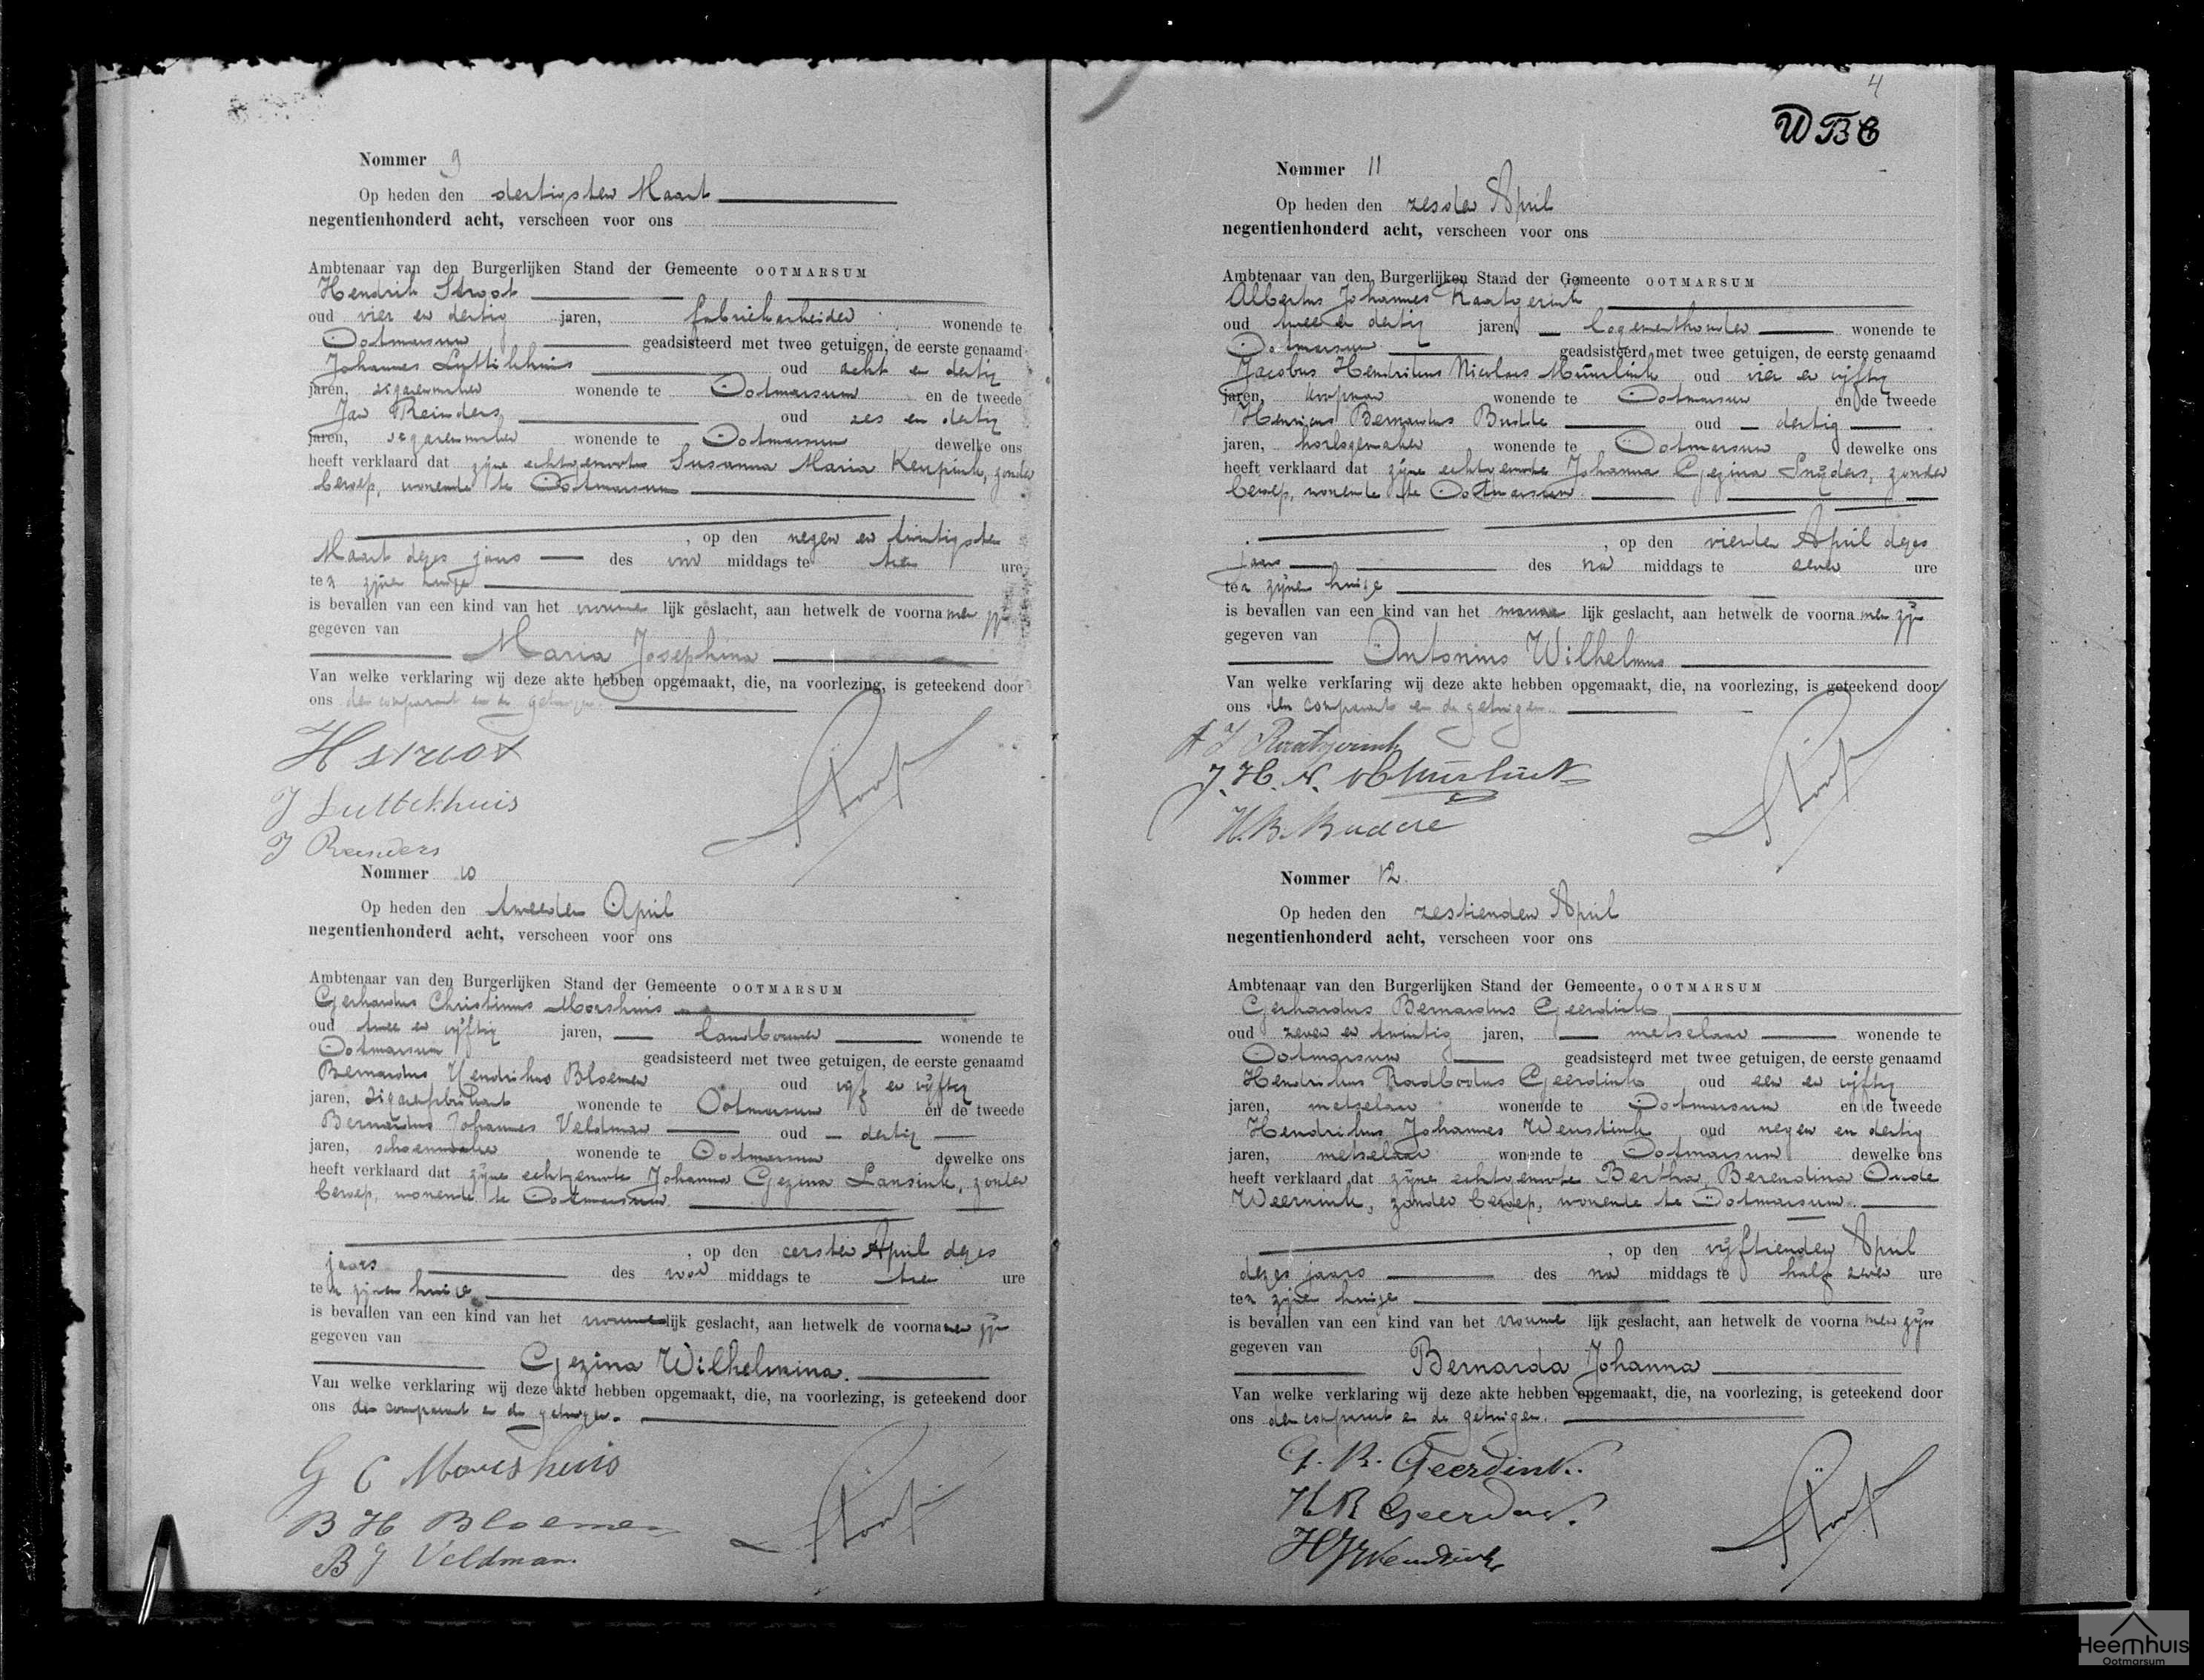 Nommer 9
Op heden den dertigsten Maart
negentienhonderd acht, verscheen voor ons
Ambtenaar van den Burgerlijken Stand der Gemeente OOTMARSUM
Hendrik Stroot
oud vier en dertig jaren, fabriekarbeider wonende te
Ootmarsum geadsisteerd met twee getuigen, de eerste genaamd
Johannes Luttikhuis oud acht en dertig
jaren, sigarenmaker wonende te Ootmarsum en de tweede
Jan Reinders oud zes en dertig
jaren, sigarenmaker wonende te Ootmarsum dewelke ons
heeft verklaard dat zijne echtgenoote Susanna Maria Keupink, zonder
beroep, wonende te Ootmarsum
, op den negen en twintigsten
Maart dezes jaars des voor middags te tien ure
ten zijnen huize
is bevallen van een kind van het vrouwe lijk geslacht, aan hetwelk de voorna men zijn
gegeven van
Maria Josephina
Van welke verklaring wij deze akte hebben opgemaakt, die, na voorlezing, is geteekend door
ons den comparant en de getuigen.
H Stroot
J Luttekhuis
J Reinders
Nommer 10
Op heden den tweeden April
negentienhonderd acht, verscheen voor ons
Ambtenaar van den Burgerlijken Stand der Gemeente OOTMARSUM
Gerhardus Christinus Morshuis
oud twee en vijftig jaren, landbouwer wonende te
Ootmarsum geadsisteerd met twee getuigen, de eerste genaamd
Bernardus Hendrikus Bloemen oud vijf en vijftig
jaren, sigarenfabrikant wonende te Ootmarsum en de tweede
Bernardus Johannes Veldman oud dertig
jaren, schoenmaker wonende te Ootmarsum dewelke ons
heeft verklaard dat zijne echtgenoote Johanna Gezina Lansink, zonder
beroep, wonende te Ootmarsum
, op den eersten April dezes
jaars des voor middags te tien ure
ten zijnen huize
is bevallen van een kind van het vrouwe lijk geslacht, aan hetwelk de voorna men zijn
gegeven van
Gezina Wilhelmina.
Van welke verklaring wij deze akte hebben opgemaakt, die, na voorlezing, is geteekend door
ons den comparant en de getuigen.
G C Morshuis
B H Bloemen
B J Veldman.
4
WBC
Nommer 11
Op heden den zesden April
negentienhonderd acht, verscheen voor ons
Ambtenaar van den Burgerlijken Stand der Gemeente OOTMARSUM
Albertus Johannes Raatgerink
oud twee en dertig jaren, logementhouder wonende te
Ootmarsum geadsisteerd met twee getuigen, de eerste genaamd
Jacobus Hendrikus Nicolaas Muurlink oud vier en vijftig
jaren, koopman wonende te Ootmarsum en de tweede
Henricus Bernardus Budde oud dertig
jaren, horlogemaker wonende te Ootmarsum dewelke ons
heeft verklaard dat zijne echtgenoote Johanna Gezina Snijders, zonder
beroep, wonende te Ootmarsum.
, op den vierden April dezes
jaars des na middags te zeven ure
ten zijnen huize
is bevallen van een kind van het manne lijk geslacht, aan hetwelk de voorna men zijn
gegeven van
Antonius Wilhelmus
Van welke verklaring wij deze akte hebben opgemaakt, die, na voorlezing, is geteekend door
ons den comparant en de getuigen.
A J Raatgerink
J. H. N. Muurlink
H.B. Budde
Nommer 12.
Op heden den zestienden April
negentienhonderd acht, verscheen voor ons
Ambtenaar van den Burgerlijken Stand der Gemeente, OOTMARSUM
Gerhardus Bernardus Geerdink
oud zeven en twintig jaren, metselaar wonende te
Ootmarsum geadsisteerd met twee getuigen, de eerste genaamd
Hendrikus Radbodus Geerdink oud een en vijftig
jaren, metselaar wonende te Ootmarsum en de tweede
Hendrikus Johannes oud negen en dertig
jaren, metselaar wonende te Ootmarsum dewelke ons
heeft verklaard dat zijne echtgenoote Bertha Berendina Oude
Weernink, zonder beroep, wonende te Ootmarsum.
, op den vijftienden April
dezes jaars des na middags te half zeven ure
ten zijnen huize
is bevallen van een kind van het vrouwe lijk geslacht, aan hetwelk de voorna men zijn
gegeven van
Bernarda Johanna
Van welke verklaring wij deze akte hebben opgemaakt, die, na voorlezing, is geteekend door
ons den comparant en de getuigen.
G. B. Geerdink.
H R Geerdink.
Heemhuis
Ootmarsum